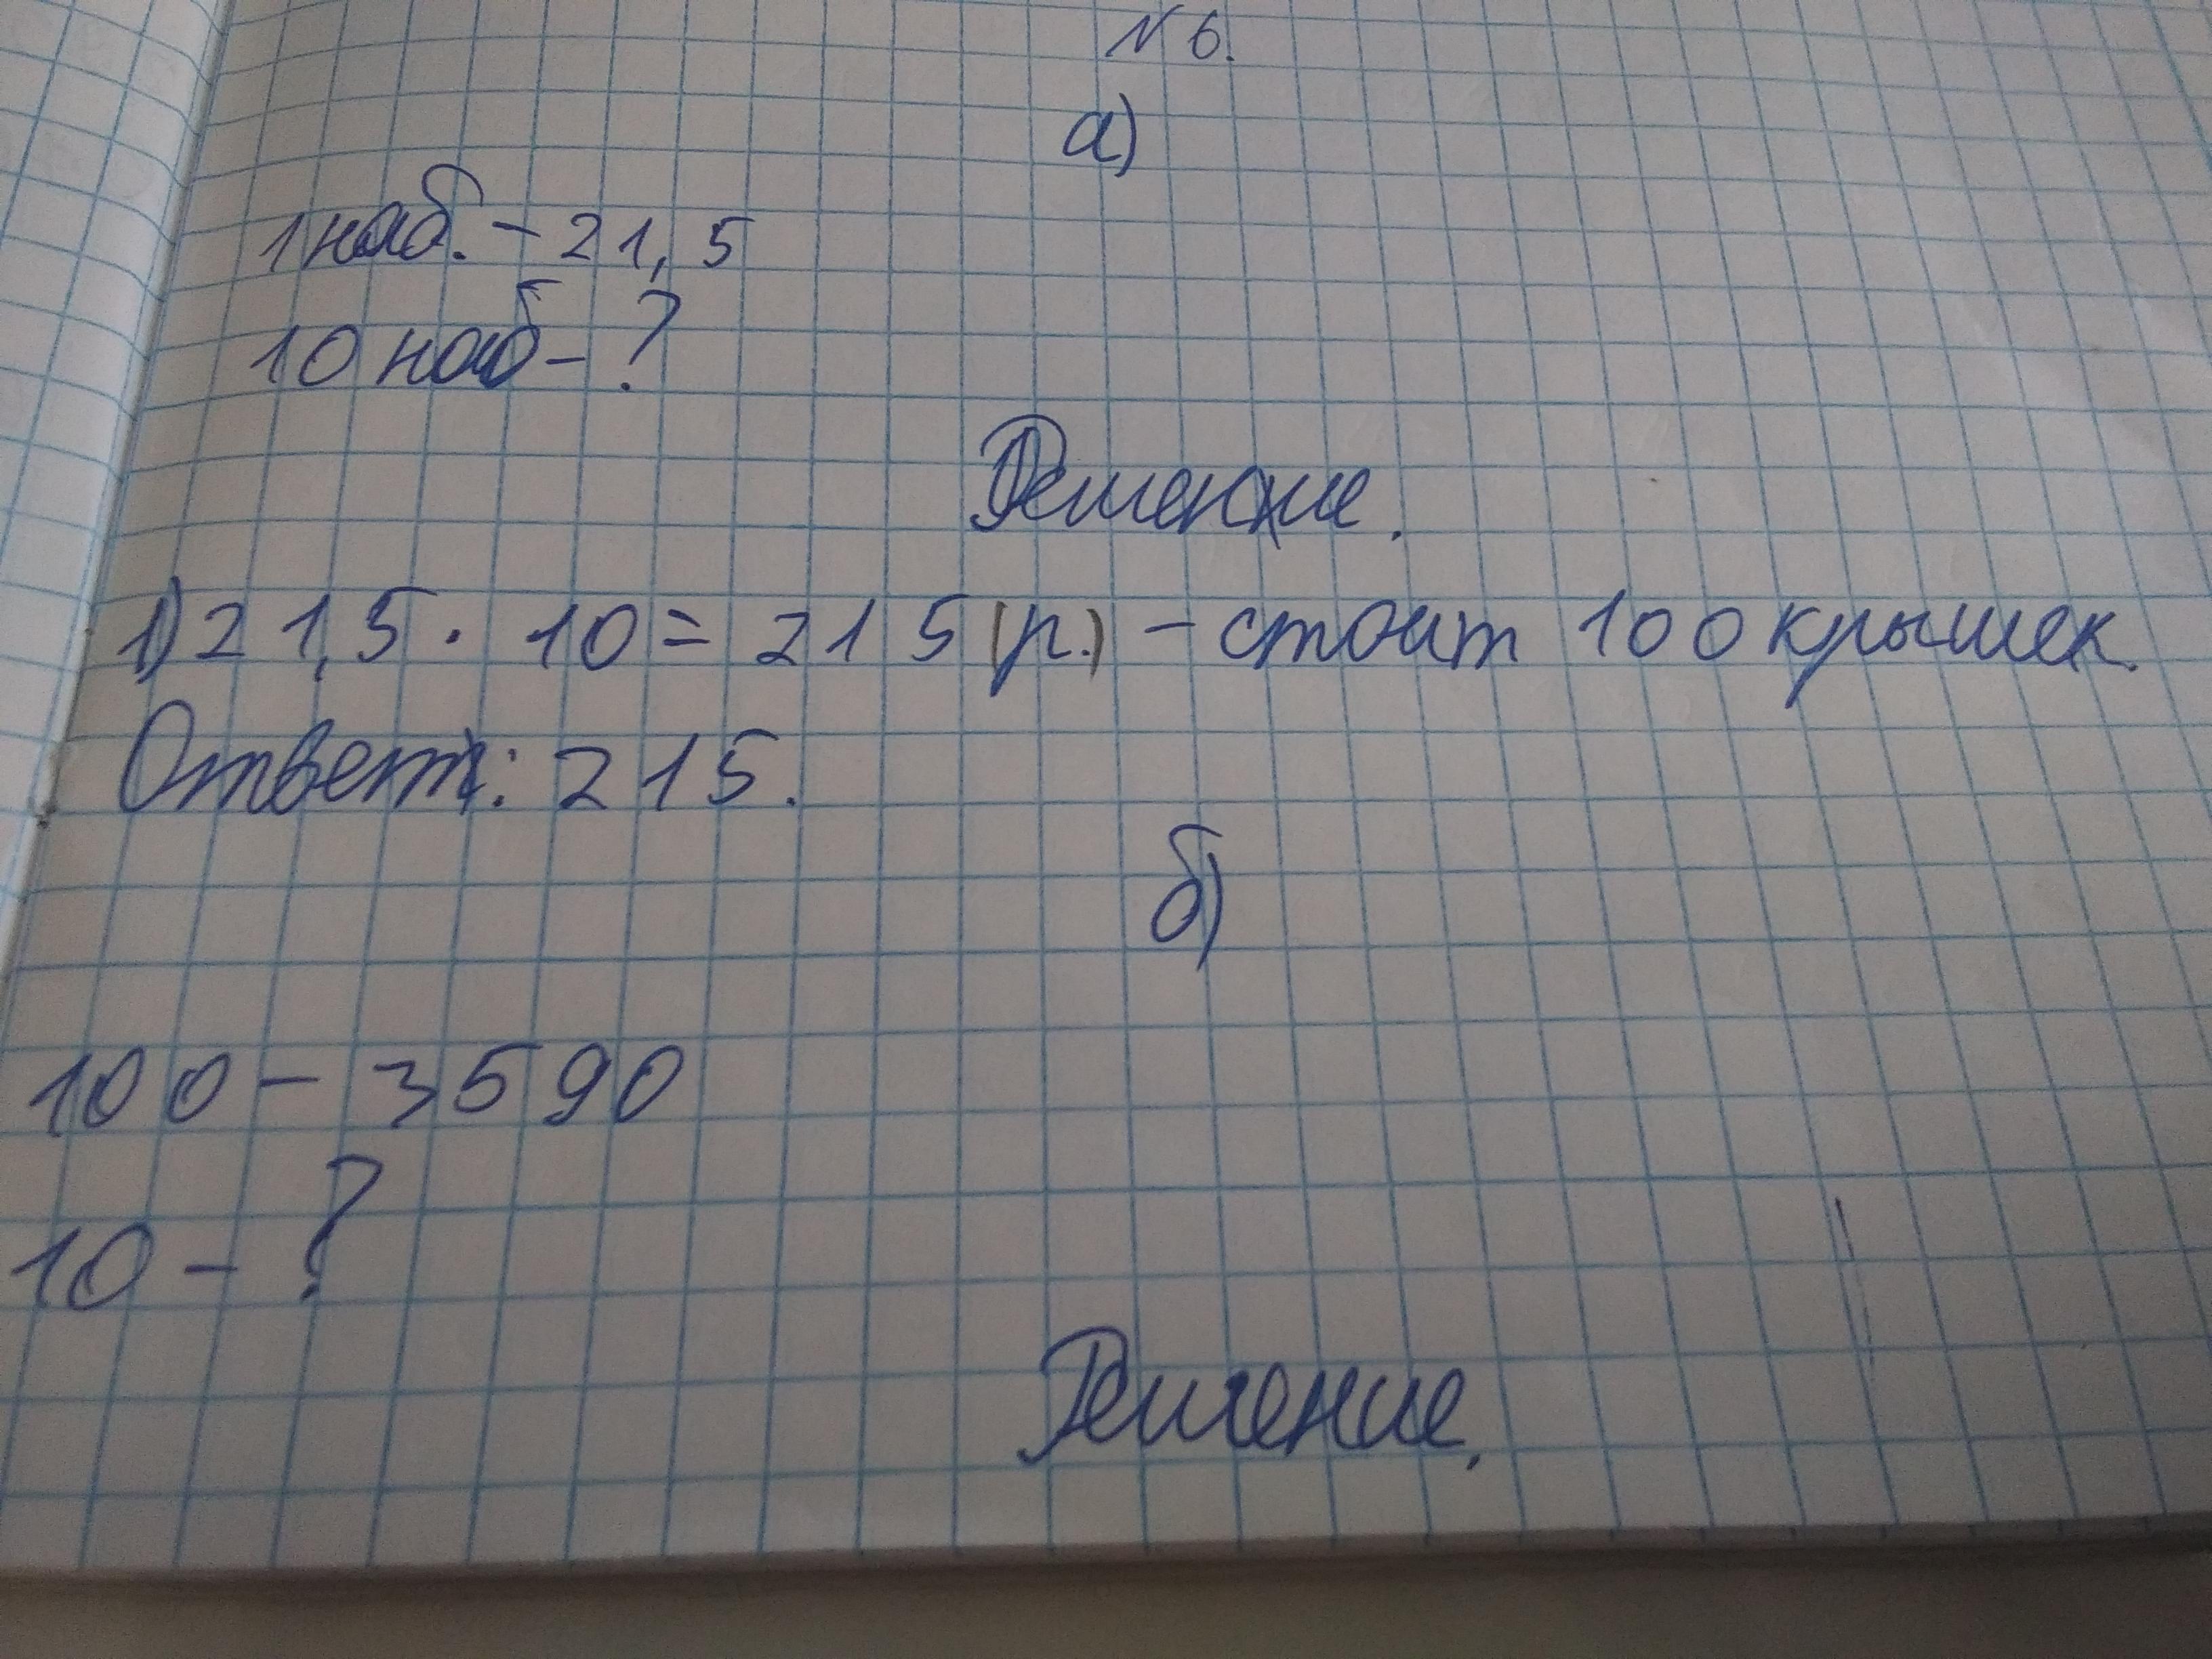 № 6.
а)
1 наб. - 21,5
10 наб - ?
Решение.
1) 21,5 · 10 = 215 (р.) - стоит 100 крышек.
Ответ: 215.
б)
100 - 3590
10 - ?
Решение.